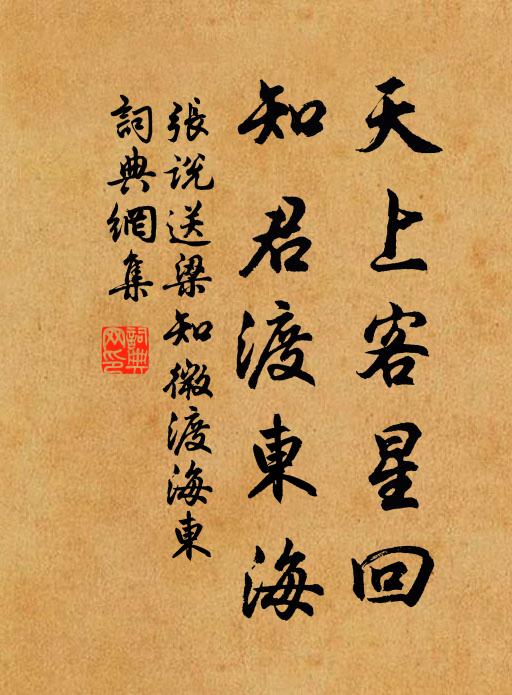 天上客星回
知君渡東海
張說送梁知微渡海東
詞典網集
詞典網印